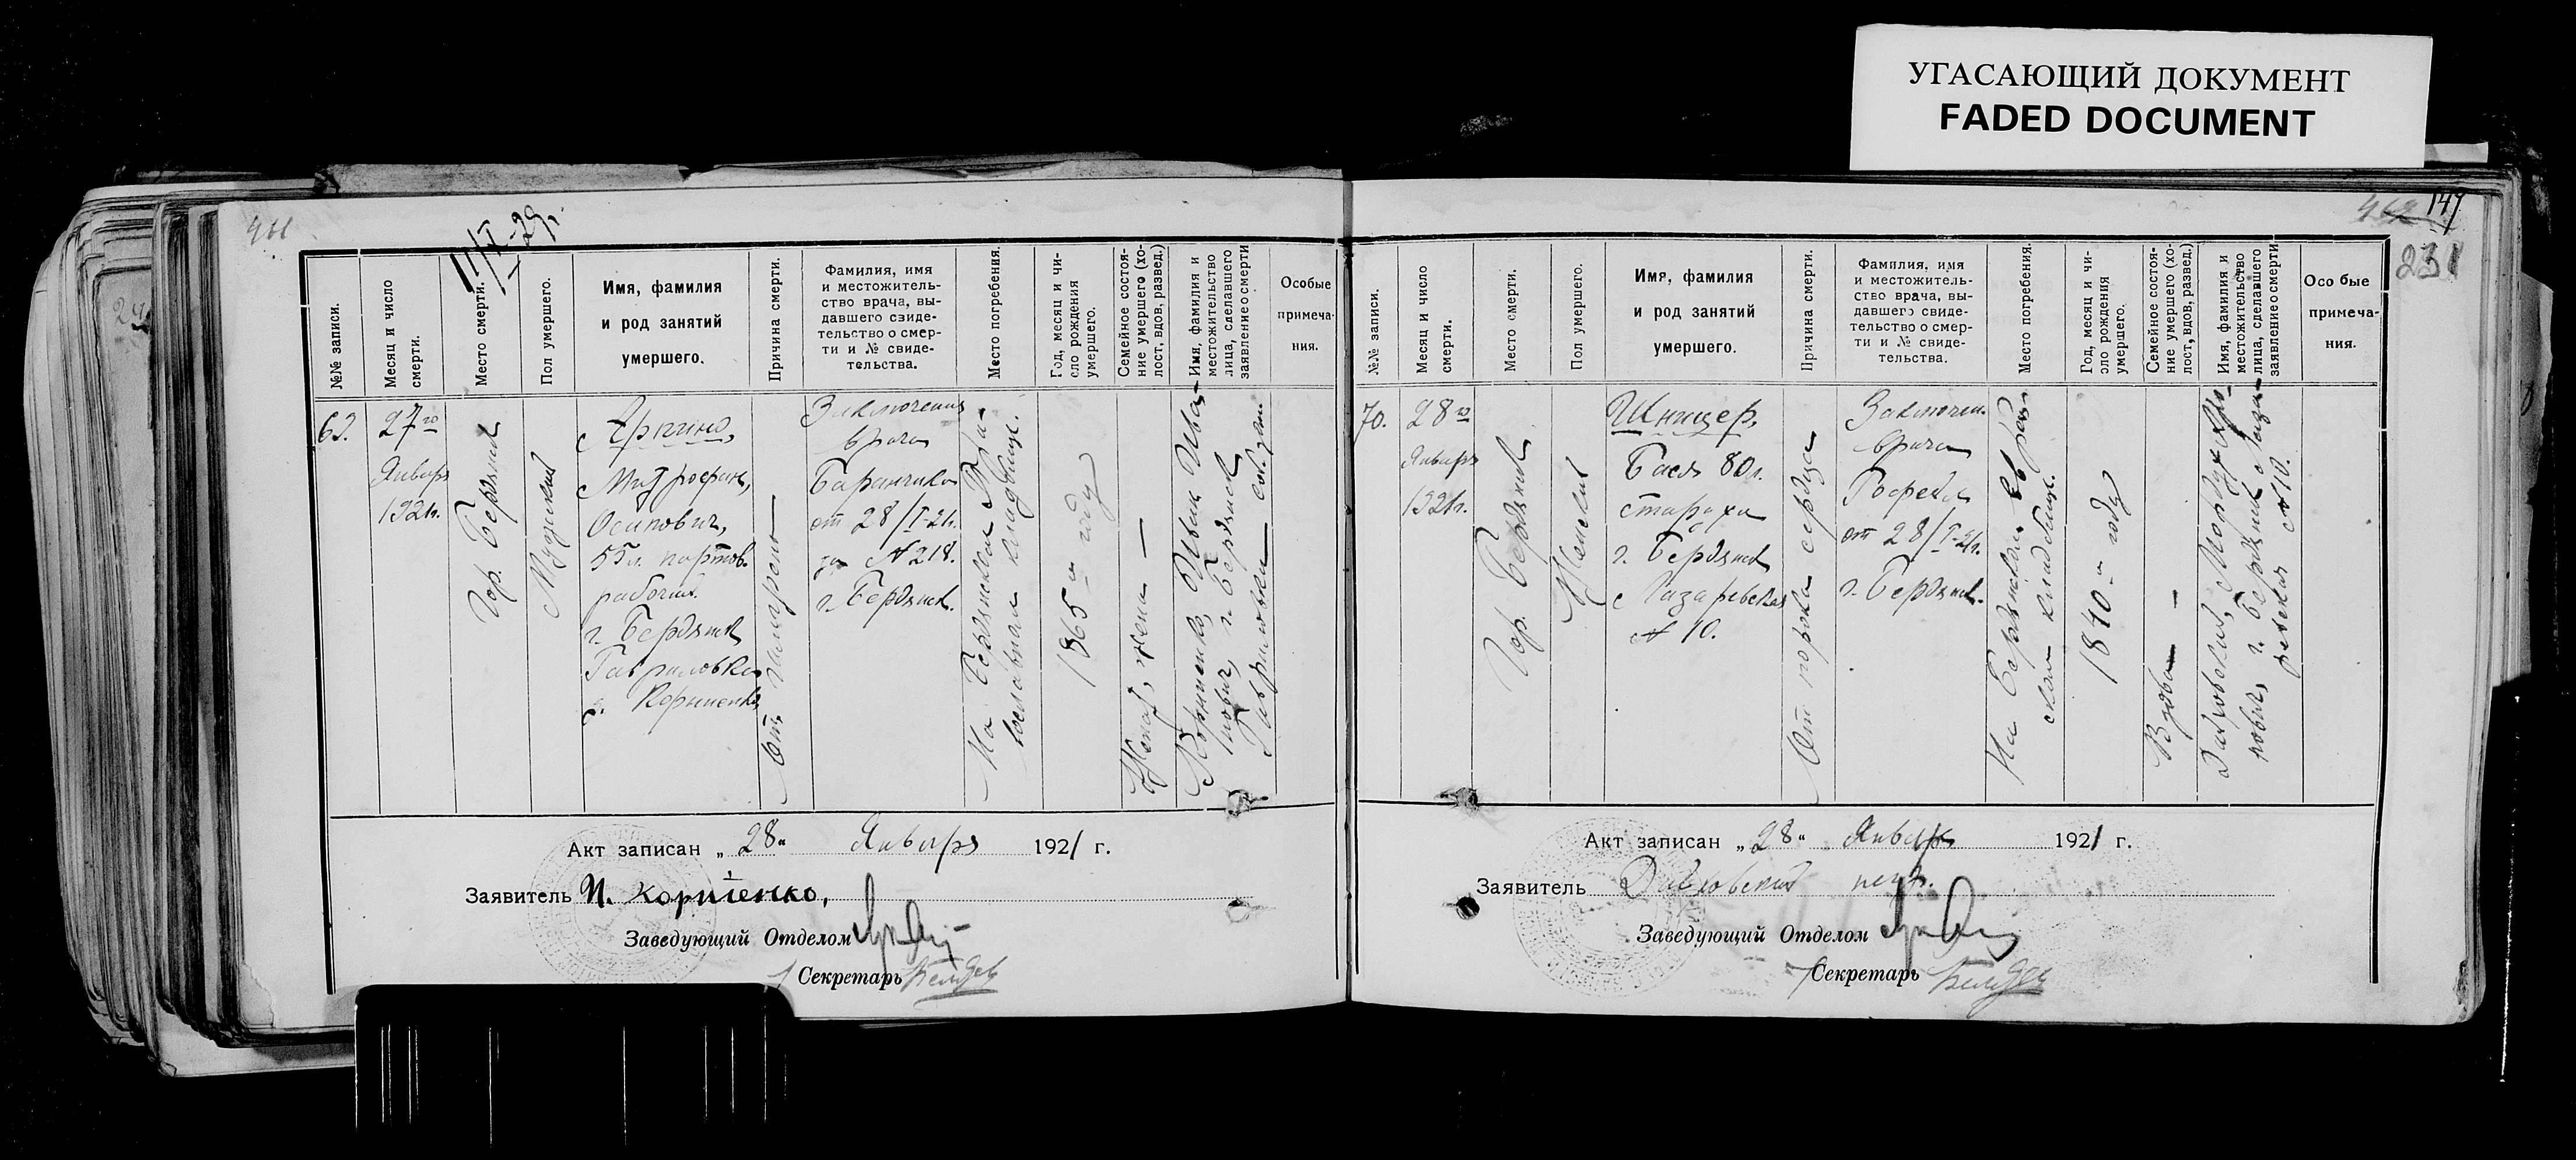 УГАСАЮЩИЙ ДОКУМЕНТ
FADED DOCUMENT
461
11/I-29г.
№№ записи.
Месяц и число
смерти.
Место смерти.
Пол умершего.
Имя, фамилия
и род занятий
умершего.
Причина смерти.
Фамилия, имя
и местожитель-
ство врача, вы-
давшего свиде-
тельство о смер-
ти и № свиде-
тельства.
Место погребения.
Год, месяц и чи-
сло рождения
умершего.
Семейное состоя-
ние умершего (хо-
лост, вдов, развед.)
Имя, фамилия и
местожительство
лица, сделавшего
заявление о смерти
Особые
примеча-
ния.
27го
Января
1921г.
Гор. Бердянск
Мужской
Митрофан,
Осипович,
55л. портов.
рабочий.
г. Бердянск
Гавриловка
д. Корниенко
Заключение
врача
от 28/I-21г.
за №218.
г. Бердянск.
На Бердянском Пра-
вославном кладбище.
1865-м году
Женат, жена —
Корниенко, Иван Ива-
нович, г. Бердянск
Гавриловка — соб. дом.
Акт записан „28“ Января 1921 г.
Заявитель И. Корніенко,
Заведующий Отделом
Секретарь
147
231
№№ записи.
Месяц и число
смерти.
Место смерти.
Пол умершего.
Имя, фамилия
и род занятий
умершего.
Причина смерти.
Фамилия, имя
и местожитель-
ство врача, вы-
давшего свиде-
тельство о смер-
ти и № свиде-
тельства.
Место погребения.
Год, месяц и чи-
сло рождения
умершего.
Семейное состоя-
ние умершего (хо-
лост, вдов, развед.)
Имя, фамилия и
местожительство
лица, сделавшего
заявление о смерти
Особые
примеча-
ния.
70.
28го
Января
1921г.
Гор. Бердянск
Женский
Шницер,
Бася 80л.
старуха
г. Бердянск
Лазаревская
№ 10.
От порока сердца
Заключен.
врача
от 28/I-21г.
г. Бердянск.
На Бердянском Еврей-
ском кладбище.
1840-м году
Вдова —
г. Бердянск Лаза-
ревская №10.
Акт записан „28“ Января 1921 г.
Заявитель
Заведующий Отделом
Секретарь